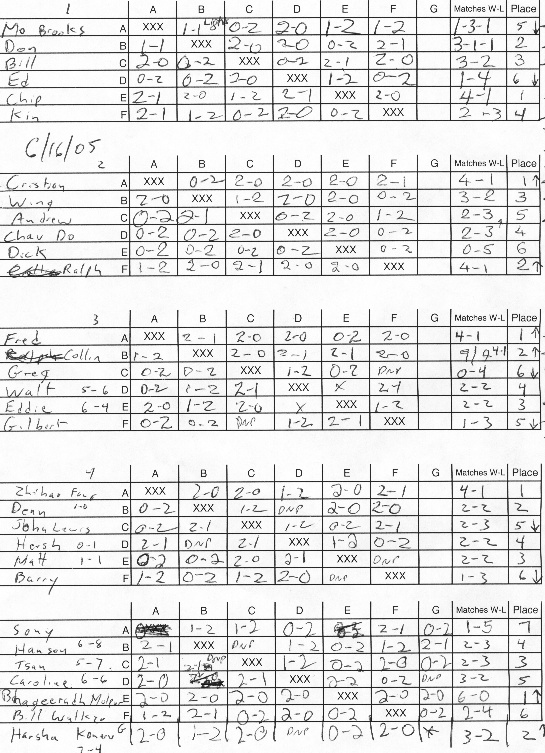 1 A B C D E F G Matches W-L Place
Mo Brooks A XXX 1-1 Light 0-2 2-0 1-2 1-2 1-3-1 5↓
Don B 1-1 XXX 2-0 2-0 0-2 2-1 3-1-1 2
Bill C 2-0 0-2 XXX 0-2 2-1 2-0 3-2 3
Ed D 0-2 0-2 2-0 XXX 1-2 0-2 1-4 6↓
Chip E 2-1 2-0 1-2 2-1 XXX 2-0 4-1 1
Kin F 2-1 1-2 0-2 2-0 0-2 XXX 2-3 4
6/16/05
2 A B C D E F G Matches W-L Place
Cristian A XXX 0-2 2-0 2-0 2-0 2-1 4-1 1↑
Wing B 2-0 XXX 1-2 2-0 2-0 0-2 3-2 3
Andrew C 0-2 2-1 XXX 0-2 2-0 1-2 2-3 5
Chau Do D 0-2 0-2 2-0 XXX 2-0 0-2 2-3 4
Dick E 0-2 0-2 0-2 0-2 XXX 0-2 0-5 6
Ralph F 1-2 2-0 2-1 2-0 2-0 XXX 4-1 2↑
3 A B C D E F G Matches W-L Place
Fred A XXX 2-1 2-0 2-0 0-2 2-0 4-1 1↑
Collin B 1-2 XXX 2-0 2-1 2-1 2-0 4-1 2↑
Greg C 0-2 0-2 XXX 1-2 0-2 DNP 0-4 6↓
Walt 5-6 D 0-2 1-2 2-1 XXX X 2-1 2-2 4
Eddie 6-4 E 2-0 1-2 2-0 X XXX 1-2 2-2 3
Gilbert F 0-2 0-2 DNP 1-2 2-1 XXX 1-3 5↓
4 A B C D E F G Matches W-L Place
Zhihao Fang A XXX 2-0 2-0 1-2 2-0 2-1 4-1 1
Dean 1-0 B 0-2 XXX 1-2 DNP 2-0 2-0 2-2 2
John Lewis C 0-2 2-1 XXX 1-2 0-2 2-1 2-3 5↓
Hersh 0-1 D 2-1 DNP 2-1 XXX 1-2 0-2 2-2 4
Matt 1-1 E 0-2 0-2 2-0 2-1 XXX DNP 2-2 3
Barry F 1-2 0-2 1-2 2-0 DNP XXX 1-3 6↓
A B C D E F G Matches W-L Place
Sony A 1-2 1-2 0-2 2-1 0-2 1-5 7
Hanson 6-8 B 2-1 XXX DNP 1-2 0-2 1-2 2-1 2-3 4
Tsan 5-7 C 2-1 DNP XXX 1-2 0-2 2-0 0-2 2-3 3
Caroline 6-6 D 2-0 2-1 XXX 0-2 DNP 3-2 5
Bhageerath E 2-0 2-0 2-0 2-0 XXX 2-0 2-0 6-0 1↑
Bill Walker F 1-2 2-1 0-2 2-0 0-2 XXX 0-2 2-4 6
Harsha G 2-0 1-2 2-0 DNP 0-2 2-0 3-2 2↑
7-4